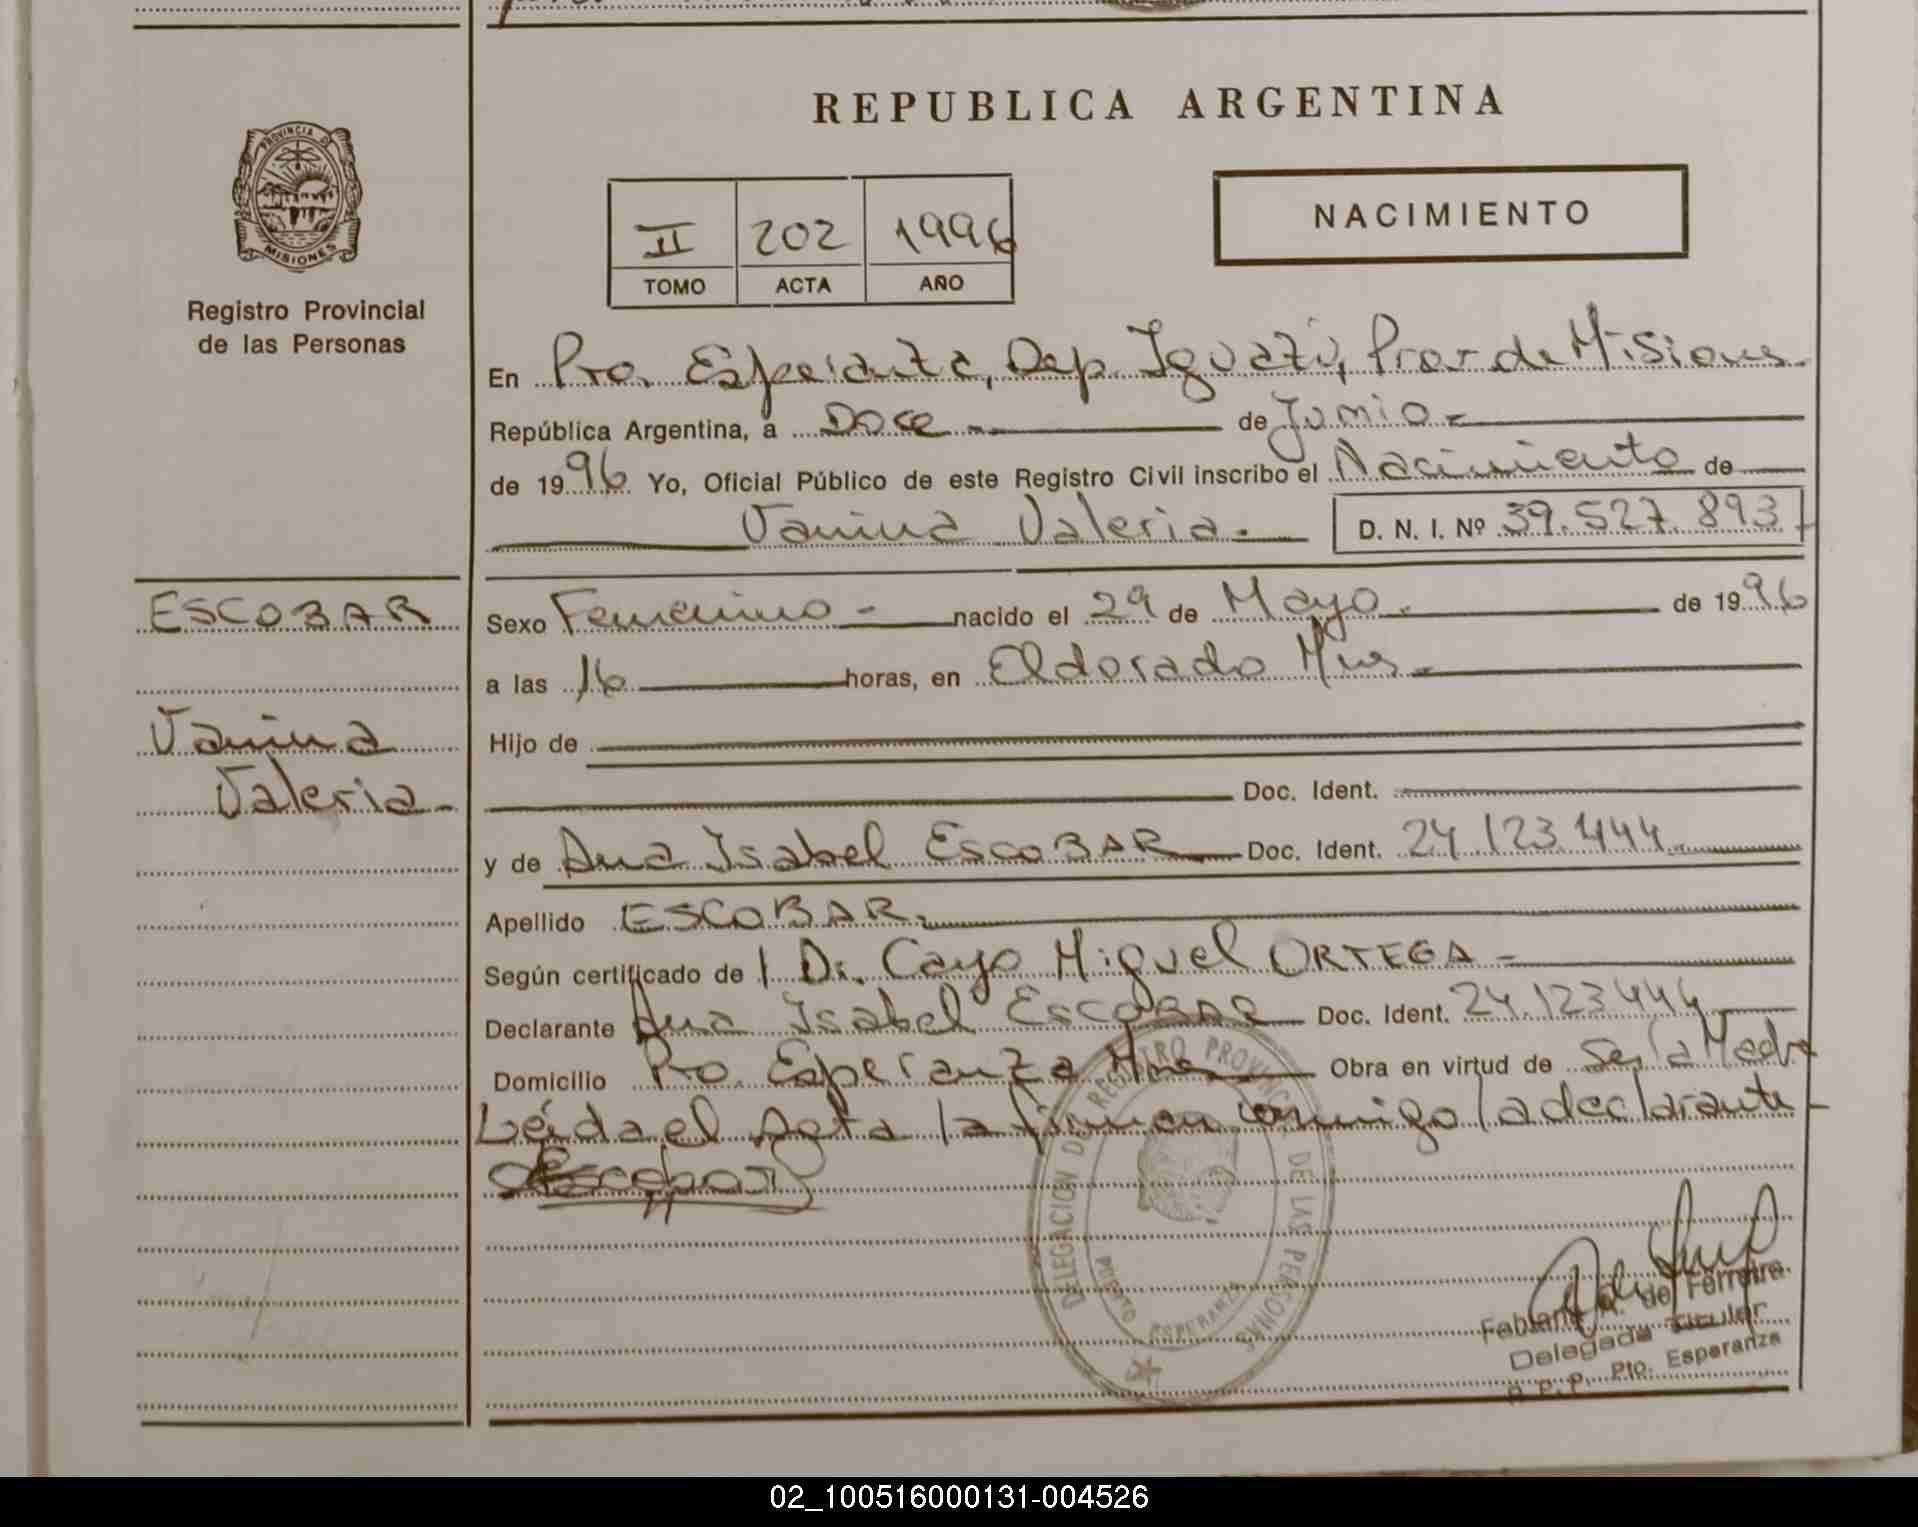 REPUBLICA ARGENTINA
PROVINCIA D MISIONES
Registro Provincial
de las Personas
II 202 1996
TOMO ACTA AÑO
NACIMIENTO
En Pto. Esperanza, Dep. Iguazú, Prov de Misiones.
República Argentina, a Doce de Junio
de 1996 Yo, Oficial Público de este Registro Civil inscribo el Nacimiento de
Vanina Valeria. D. N. I. Nº 39.527.893
ESCOBAR
Vanina
Valeria
Sexo Femenino nacido el 29 de Mayo de 1996
a las 16 horas, en Eldorado Mnes.
Hijo de
Doc. Ident.
y de Ana Isabel ESCOBAR Doc. Ident. 24.123.444
Apellido ESCOBAR.
Según certificado de Dr. Cayo Miguel ORTEGA
Declarante Ana Isabel ESCOBAR Doc. Ident. 24.123.444
Domicilio Pto. Esperanza Mnes Obra en virtud de Ser la Madre
Leída el Acta la firman conmigo la declarante
Escobar
DELEGACION DEL REGISTRO PROVINCIAL DE LAS PERSONAS
PUERTO ESPERANZA
de Ferreira
Delegada Titular
R.P.P. Pto. Esperanza
02_100516000131-004526